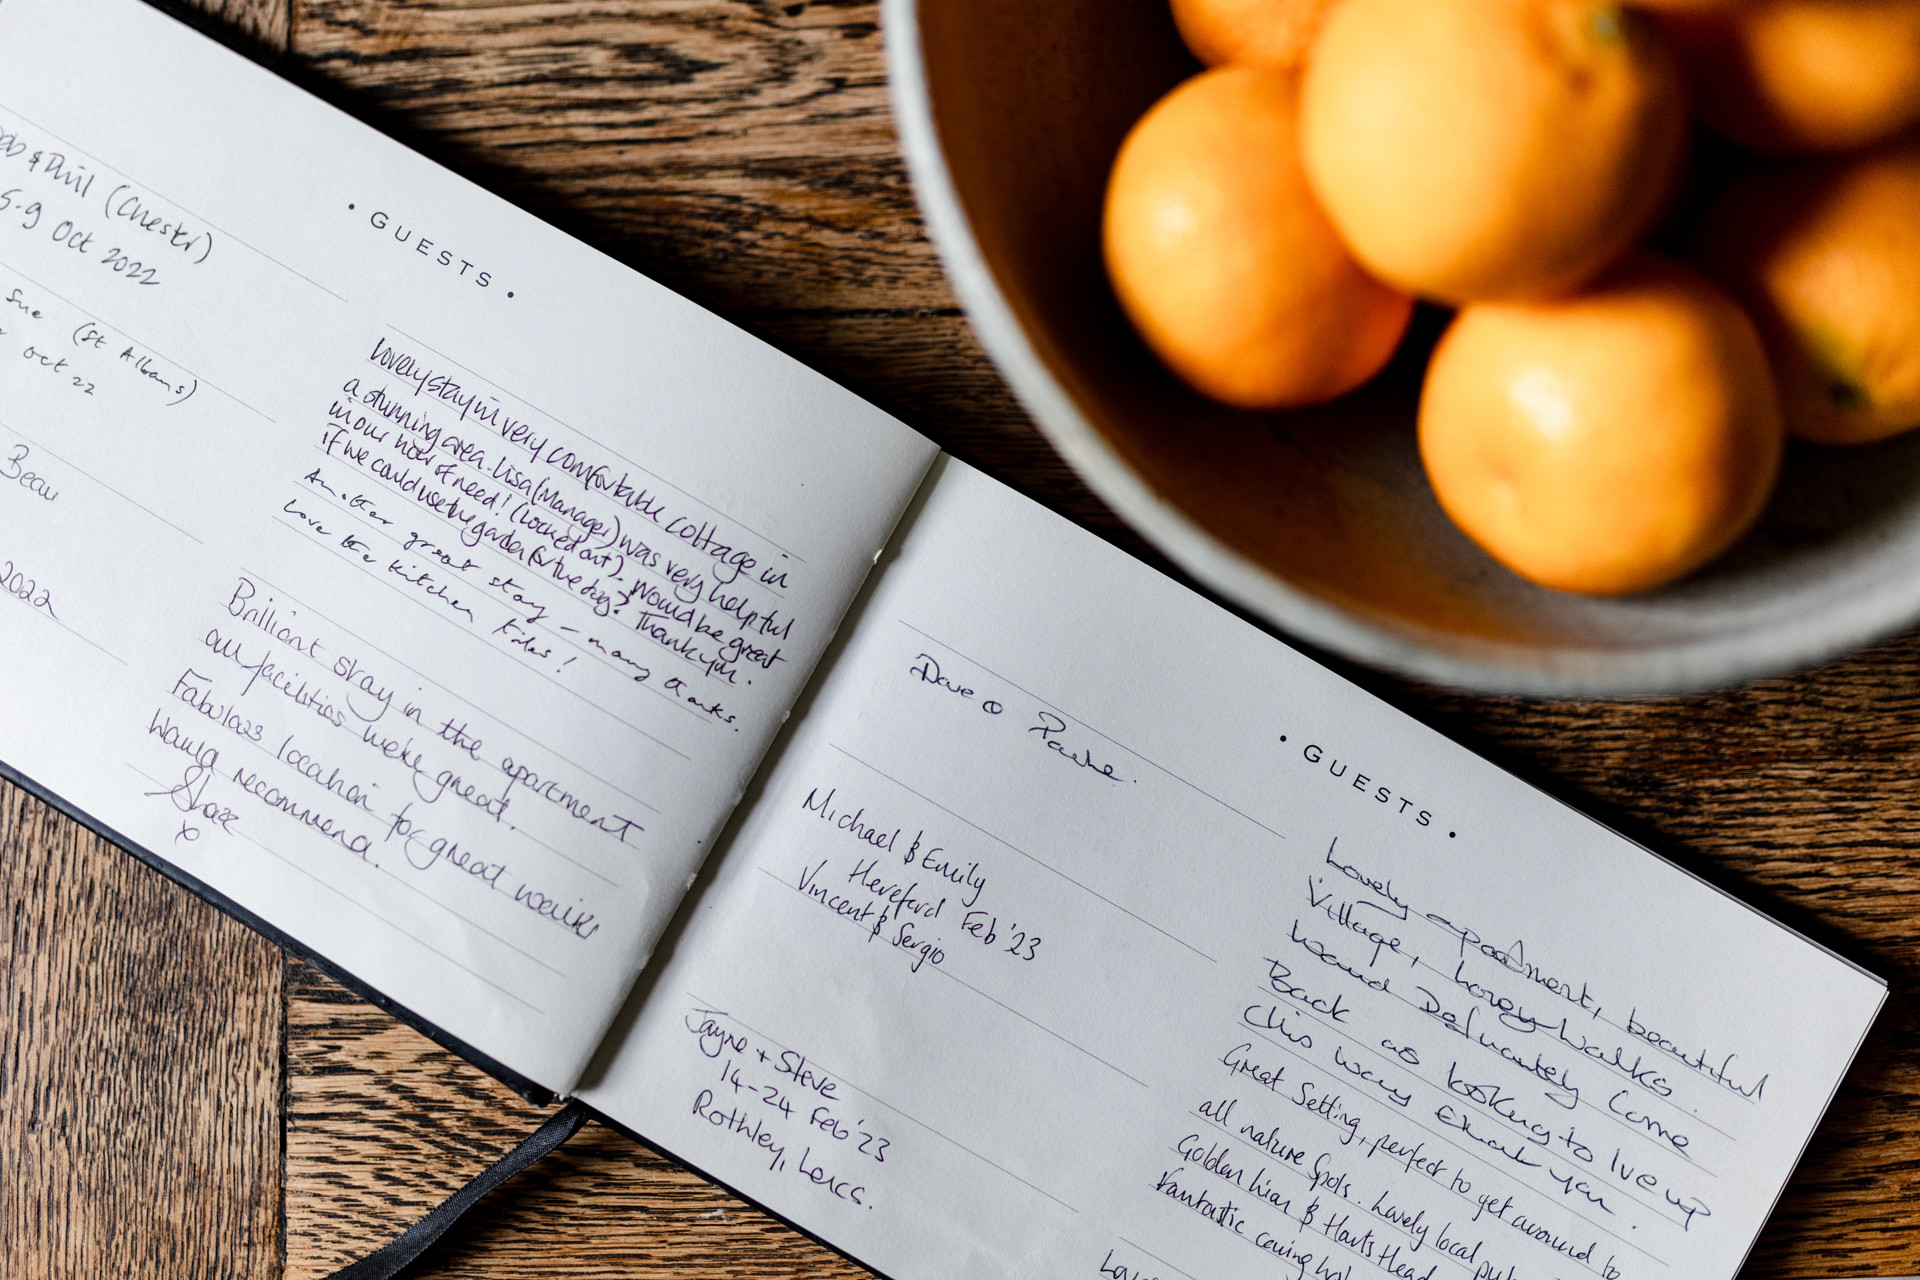 & Phil (Chester)
5-9 Oct 2022
Sue (St Albans)
Oct 22
Beau
2022
• GUESTS •
Lovely stay in very comfortable cottage in
a stunning area. Lisa (Manager) was very helpful
in our hour of need! (Locked out). Would be great
if we could use the garden for the dog? Thank you.
Another great stay - many thanks.
Love the kitchen tiles!
Brilliant stay in the apartment
all facilities were great.
Fabulous location for great walks
would recommend.
x
Dave
Michael & Emily
Hereford Feb '23
Vincent & Sergio
Jayne + Steve
14-24 Feb '23
Rothley, Leics.
• GUESTS •
Lovely apartment, beautiful
Village, lovely walks.
would Definately Come
Back as looking to live up
this way thank you.
Great Setting, perfect to get around to
all nature spots. Lovely local pubs
Golden Lion & Harts Head
Fantastic